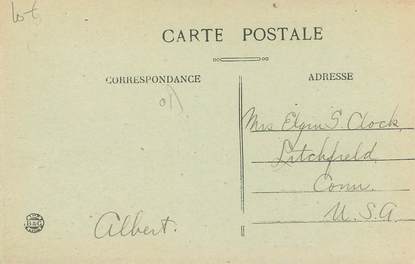 lot
CARTE POSTALE
CORRESPONDANCE
ADRESSE
Mrs Elgin S. Clock,
Litchfield,
Conn.
U.S.A.
Albert.
B&G